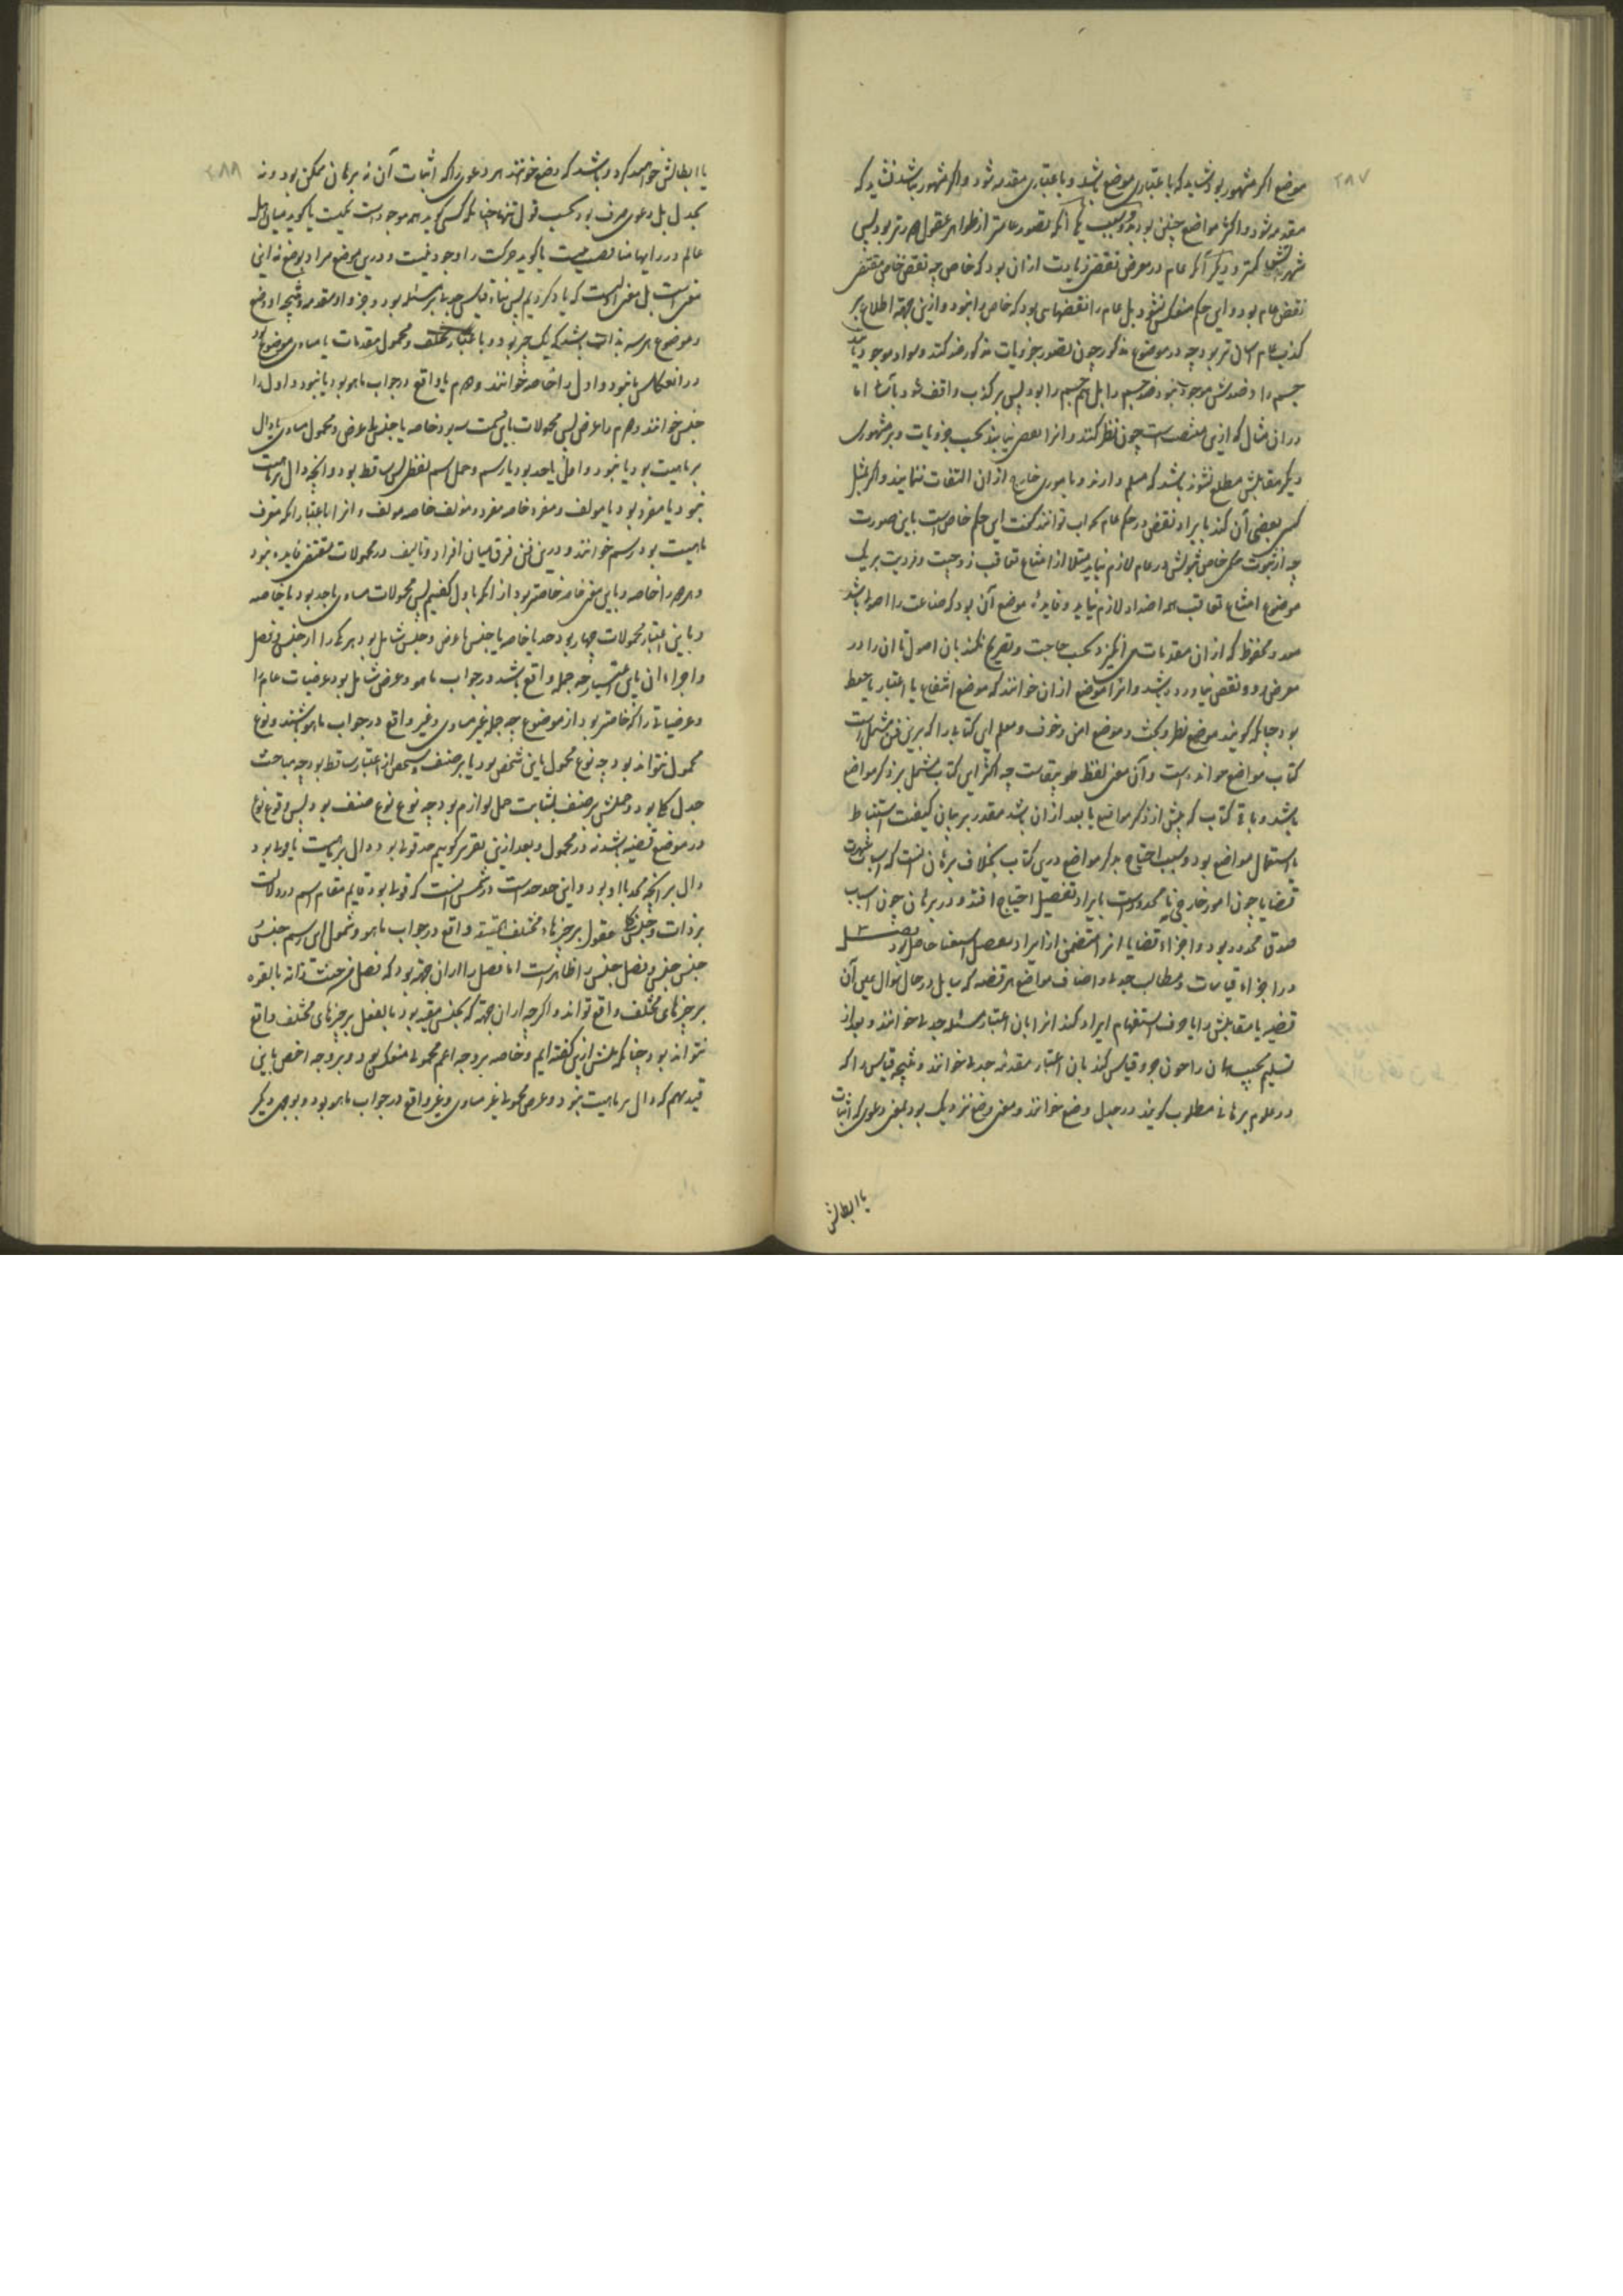 ۲۸۷
موضع اگر مشهور بود شاید که باعتباری موضع باشد و باعتباری مقدمه شود و اگر مشهور نباشد نشاید که
مقدمه شود و اکثر مواضع چنین بود بدو سبب یکی آنکه تصور عامتر از ظواهر عقول دورتر بود پس
شهرتش کمتر و دیگر آنکه عام در معرض نقض زیادت ازان بود که خاص چه نقض خاص مقتضی
نقض عام بود و این حکم منعکس نشود بل عام را نقضهایی بود که خاص را نبود و ازین جهة اطلاع بر
کذب عام آسان تر بود چه در موضوع مذکور چون تصور جزویات مذکور کنند و سواد موجود باشد
جسم را و ضدش موجود نبود ضد جسم را بل هم جسم را بود پس بر کذب واقف شود بآسانی اما
دران مثال که ازین متشعب است چون نظر کنند و انرا نقض نیابند بحسب جزویات و بر مشهوری
دیگر مقابلش مطلع نشوند باشد که مسلم دارند و بامور خارج ازان التفات ننمایند و اگر بمثل
کسی بعضی آن کند بایراد نقض در حکم عام بجواب توانند گفت این حکم خاص است باین صورت
چه از ثبوت حکم خاص ثبوتش در عام لازم نیاید مثلا از امتناع تعاقب زوجیت و فردیت بر یک
موضوع امتناع تعاقب همه اضداد لازم نیاید و فایدهٔ موضع آن بود که صناعت را اصولی باشد
معد و محفوظ که ازان مقدمات می انگیزد بحسب حاجت و تصریح نکند بان اصول تا ان را در
معرض رد و نقض نیاورده باشد و انرا موضع ازان خوانند که موضع انتفاع یا اعتبار یا حفظ
بود چنانکه گویند موضع نظر و بحث و موضع امن و خوف و معلم این کتاب را که برین فن مشتمل است
کتاب مواضع خوانده است و آن معنی لفظ طوبیقاست چه اکثر این کتاب مشتمل بر ذکر مواضع
باشد و باقی کتاب که پیش از ذکر مواضع یا بعد ازان باشد مقدر بر بیان کیفیت استنباط
یا استعمال مواضع بود و سبب احتیاج بذکر مواضع درین کتاب بخلاف برهان انست که اسباب شهرت
قضایا چون امور خارجی نامحدود است بایراد تفصیل احتیاج افتد و در برهان چون اسباب
صدق محدود بود و اجزاء قضایا انرا متضمن از ایراد تفصیل استغنا حاصل بود فصل
در اجزاء قیاسات و مطالب جدلی و اصناف مواضع هر قضیه که سایل در حال سوال عین آن
قضیه یا مقابلش را با حرف استفهام ایراد کند انرا بان اعتبار مسئله جدلی خوانند و بعد از
تسلیم مجیب همان را چون جزو قیاس کند بان اعتبار مقدمه جدلی خوانند و نتیجه قیاس را که
در علوم برهانی مطلوب گویند در جدل وضع خوانند و معنی وضع نزدیک بود بمعنی دعوی که اثبات
یا ابطالش
۲۸۸
یا ابطالش خواهند کرد و باشد که وضع خوانند هر دعوی را که اثبات آن نه برهان ممکن بود و نه
بجدل بل دعوی صرف بود بحسب قول تنها چنانکه کسی گوید همه موجود است نیست یا گوید میان اهل
عالم در رایها مناقضه نیست یا گوید حرکت را وجود نیست و درین موضع مراد بوضع نه این
معنی است بل معنی اول است که یاد کردیم پس بناء قیاس جدلی بر مسئله بود و جزو او مقدمه و نتیجه او وضع
و موضوع هر سه بذات باشد که یک چیز بود و باعتبار مختلف و محمول مقدمات یا مساوی موضوع بود
در انعکاس یا نبود و اول را خاصه خوانند و دوم یا واقع در جواب ما هو بود یا نبود و اول را
جنس خوانند و دوم را عرض پس محمولات باین قسمت سه بود خاصه یا جنس یا عرض و محمول مساوی یا دال
بر ماهیت بود یا نبود و اول یا حد بود یا رسم و حمل اسم لفظی پس ساقط بود و آنچه دال بر ماهیت
نبود یا مفرد بود یا مولف و مفرد خاصه مفرد و مولف خاصه مولف و انرا باعتبار انکه معرف
ماهیت بود رسم خوانند و درین فن فرق میان افراد و تالیف در محمولات مقتضی فایده نبود
و هر دو را خاصه و باین معنی خاصه خاصتر بود از انکه باول گفتیم پس محمولات مساوی یا حد بود یا خاصه
و باین اعتبار محمولات چهار بود حد یا خاصه یا جنس یا عرض و جنس شامل بود هر یکی را از جنس و فصل
و اجزاء ان باین اعتبار چه جمله واقع باشند در جواب ما هو و عرض شامل بود عرضیات عام را
و عرضیاتی را که خاصتر بود از موضوع چه جمله غیر مساوی و غیر واقع در جواب ما هو باشند و نوع
محمول نتواند بود چه نوع محمول یا بر شخص بود یا بر صنف و شخص از اعتبار ساقط بود چه مباحث
جدل کلی بود و حملش بر صنف بمثابت حمل لوازم بود چه نوع نوع صنف نبود پس وقوع نوع
در موضع قضیه باشد نه در محمول و بعد ازین تقریر گوییم حد قولی بود دال بر ماهیت یا قولی بود
دال بر آنچه محدود باو بود و این حد حد است و رسمش انست که قولی بود قایم مقام اسم در دلالت
بر ذات و جنس مقول بر چیزهاء مختلف الحقیقة واقع در جواب ما هو و شمول این رسم جنس
جنس جنس و فصل جنس را ظاهر است اما فصل را ازان جهة بود که فصل من حیث ذاته بالقوه
بر چیزهای مختلف واقع تواند و اگرچه ازان جهة که بجنس مقید بود بالفعل بر چیزهای مختلف واقع
نتواند بود چنانکه پیش ازین گفته ایم و خاصه بر وجه اعم محمولی منعکس بود و بر وجه اخص باین
قید هم که دال بر ماهیت نبود و عرض محمولی غیر مساوی و غیر واقع در جواب ما هو بود و بوجهی دیگر